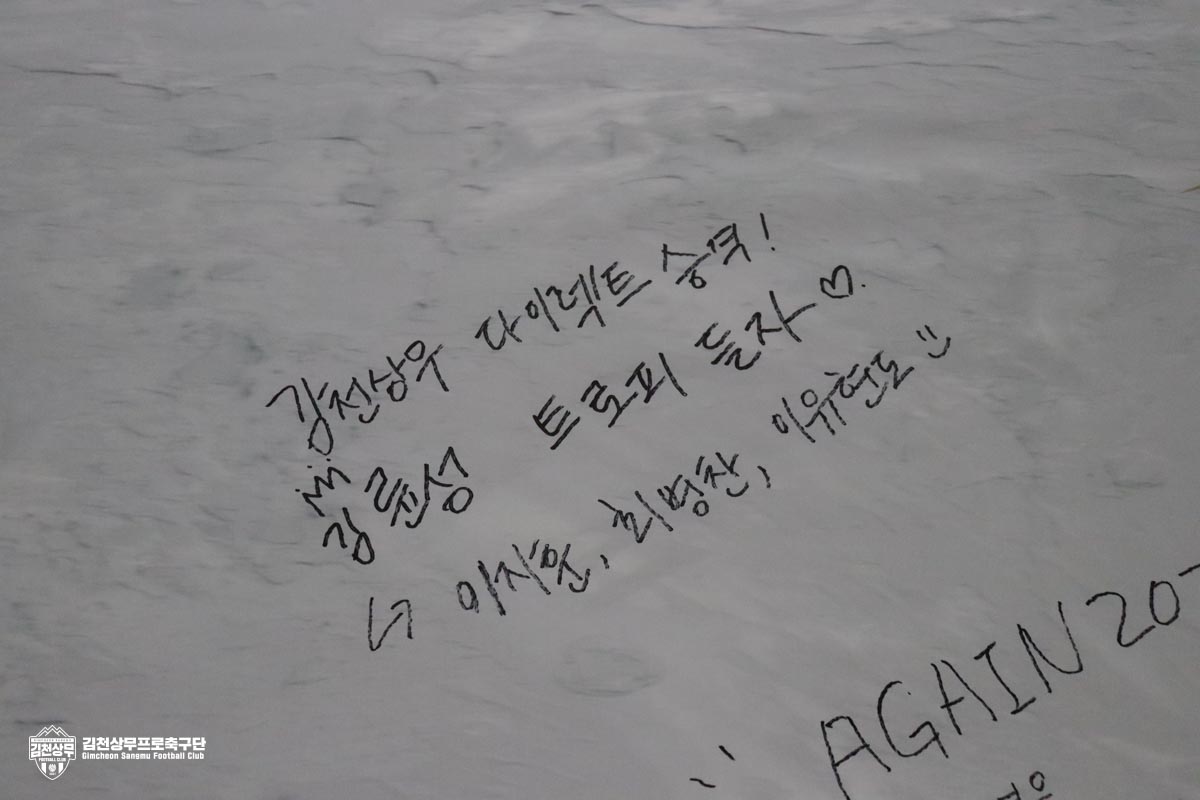 김천상무 다이렉트 승격!
김준성 트로피 들자♡.
↳ 이지훈, 최병찬, 이유현도
AGAIN 20
김천상무
FOOTBALL CLUB
김천상무프로축구단
Gimcheon Sangmu Football Club